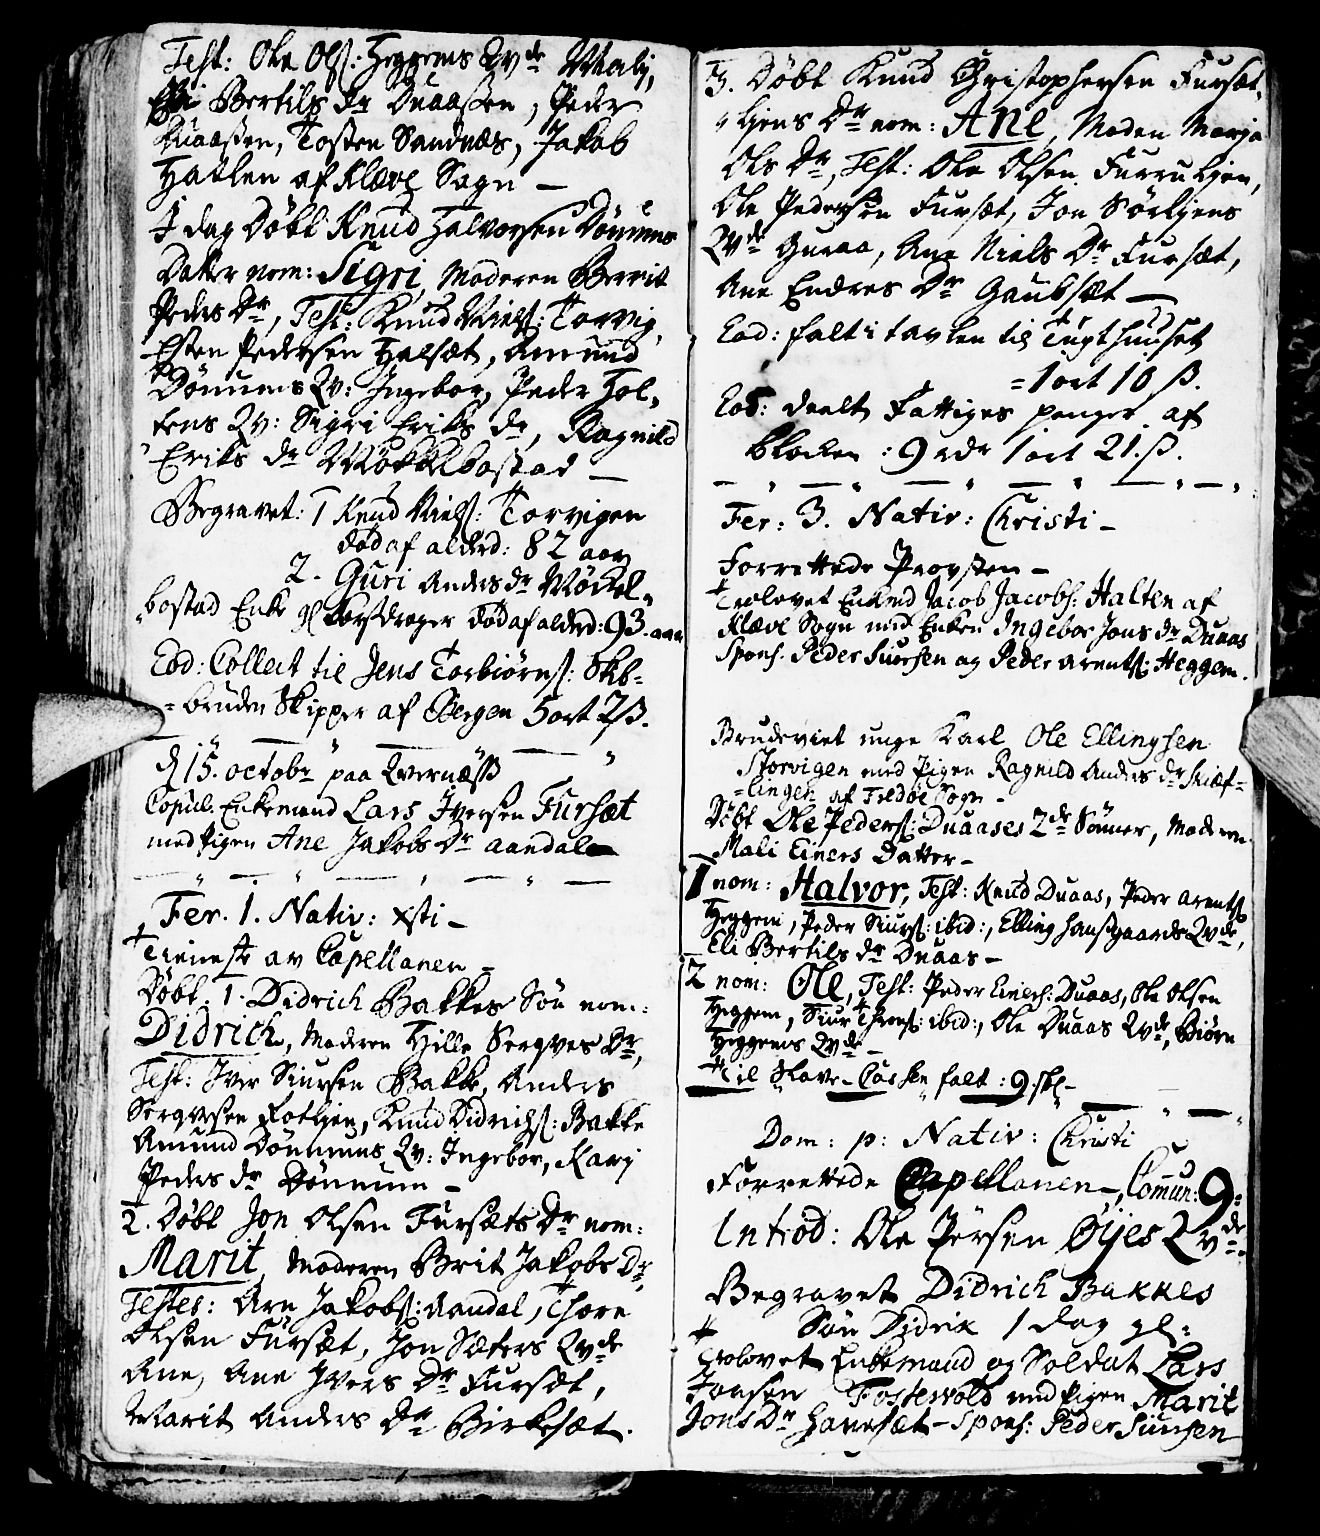 Test: Ole Ols: Heggems Qvde Maly,
Eli Bertils Dr Duaassen, Peder
Duaassen, Tosten Sandnæs, Jakob
Hatlen af Kleve Sogn —
I dag Døbt Knud Halvorsen Dønnems
Datter nom: Sigri, Moderen Berrit
Peders Dr, Test: Knud Niels: Torvig,
Esten Pedersen Halsæt, Amund
Dønnems Qv: Ingebor, Peder Hol-
tens Qv: Sigri Eriks dr, Ragnild
Eriks dr Møkkelbostad —
Begravet: 1 Knud Niels: Torvigen
død af alderd: 82 aar
2. Guri Anders dr Møckel-
bostad Enke død af alderd: 93 aar
Eod: Collect til Jens Torbiørns: Skib-
bruden Skipper af Bergen 5 ort 2 ß.
d 15. octobr paa Qvernæss
Copul: Enkemand Lars Iversen Fursæt
med Pigen Ane Jakobs Dr Aandal —
Fer. 1. Nativ: Xsti —
Tieneste av Capellanen —
Døbt. 1. Didrich Bakkes Søn nom:
Didrich, Moderen Hille Sergves Dr,
Test: Iver Siursen Bakke, Anders
Sergvesen Rotlien, Knud Didrichs: Bakke
Amund Dønnems Qv: Ingebor, Marj
Peders dr Dønnem —
2. Døbt Jon Olsen Fursæts Dr nom:
Marit, Moderen Brit Jakobs Dr,
Testes: Arn Jakobs: Aandal, Thore
Olsen Fursæt, Jon Sæters Qvde
Ane, Ane Ivers Dr Fursæt,
Marit Anders Dr Birkesæt.
3. Døbt Knud Christophersen Fursæt-
liens Dr nom: Ane, Moden Marja
Ols Dr, Test: Ole Olsen Furrulien,
Ole Pedersen Fursæt, Jon Sørliens
Qvde Guraa, Ane Niels Dr Fursæt,
Ane Endres Dr Gaubsæt —
Eod: falt i tavlen til Tugthuuset
= 1 ort 10 ß.
Eod: deelt Fattiges penger af
blocken: 9 rdr 1 ort 21. ß.
Fer: 3. Nativ: Christi —
Forrettede Provsten —
Trolovet Enkmd Jacob Jacobs: Halten af
Kleve Sogn med Enken Ingebor Jons dr Duaas
Spons: Peder Siursen og Peder Arents: Heggem.
Brudeviet unge Karl Ole Ellingsen
Storvigen med Pigen Ragnild Anders dr Skiæf-
lingen af Fredøe Sogn —
Døbt Ole Peders: Duaases 2de Sønner, Moderen
Mali Einers Datter —
1 nom: Halvor, Test: Knud Duaas, Peder Arents:
Heggem, Peder Siurs: ibid:, Elling Hansgaards Qvde,
Eli Bertils dr Duaas —
2 nom: Ole, Test: Peder Einers: Duaas, Ole Olsen
Heggem, Siur Ths: ibid:, Ole Duaas Qvde, Biørn
Heggems Qvde —
Til Slave-Cassen falt: 9. skl —
Dom: p: Nativ: Christi
Forrettede Capellanen —, Comun: 9.
Introd: Ole Persen Øyes Qvde.
Begravet Didrich Bakkes
Søn Didrik 1 dag gl:
Trolovet Enkemand og Soldat Lars
Jonsen Fostervold med Pigen Marit
Jons Dr Havnsæt — Spons: Peder Siursen